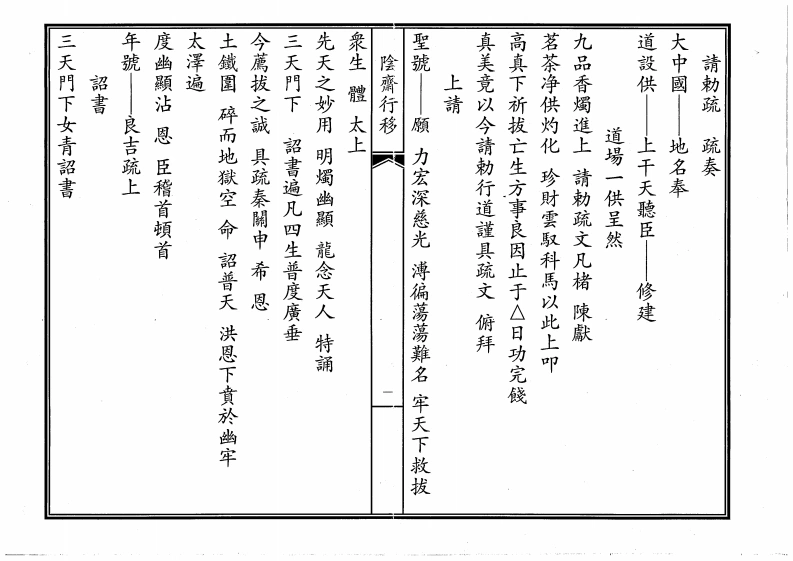 請勅疏　疏奏
大中國——地名奉
道設供——上干天聽臣——修建
道場一供呈然
九品香燭進上　請勅疏文凡楮　陳獻
茗茶净供灼化　珍財雲馭科馬以此上叩
高真下祈拔亡生方事良因止于△日功完餞
真美竟以今請勅行道謹具疏文　俯拜
上請
聖號——願　力宏深慈光　溥徧蕩蕩難名　牢天下救拔
陰齋行移　一
衆生　體　太上
先天之妙用　明燭幽顯　龍念天人　特誦
三天門下　詔書遍凡四生普度廣垂
今薦拔之誠　具疏秦關申　希　恩
土鐵圍　碎而地獄空　命　詔普天　洪恩下賁於幽牢
太澤遍
度幽顯沾　恩　臣稽首頓首
年號——良吉疏上
詔書
三天門下女青詔書